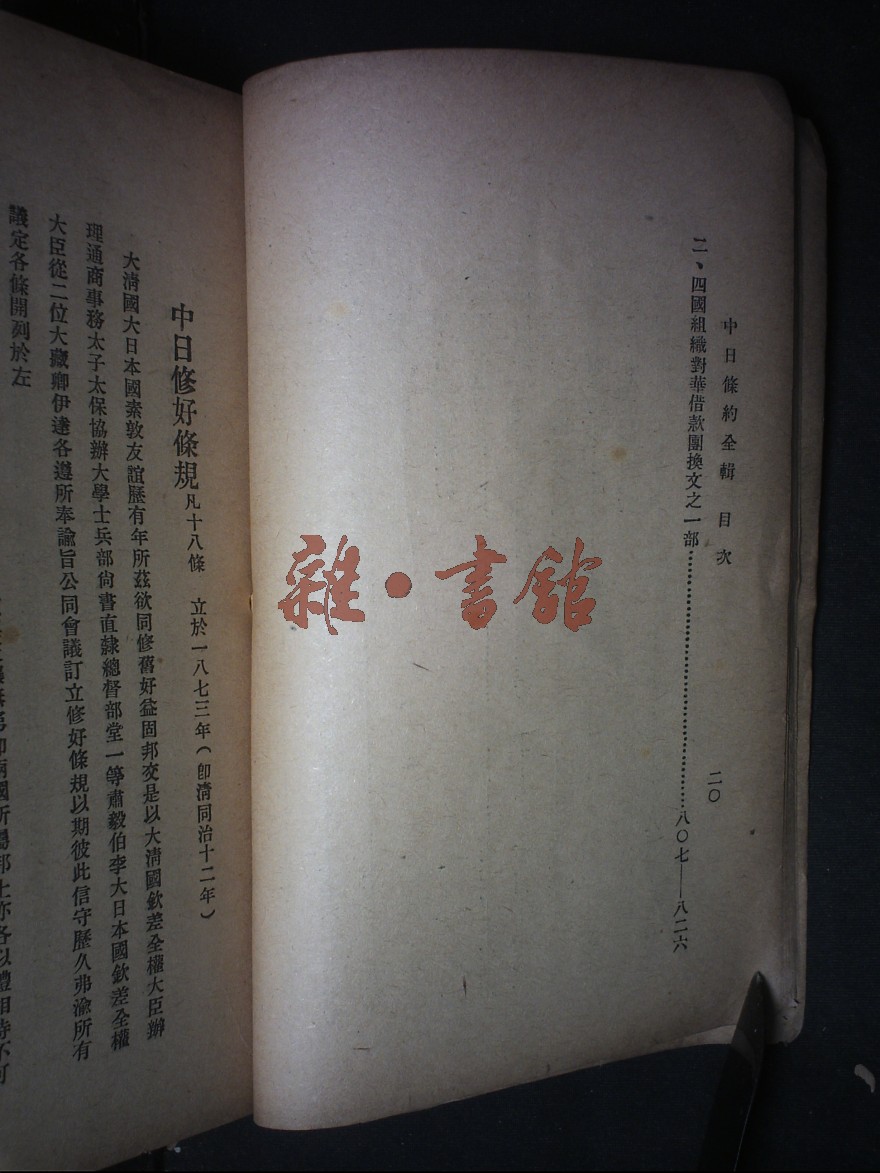 中日條約全輯 目次 二〇
二、四國組織對華借款團換文之一部……八〇七——八二六
雜·書館
中日修好條規 凡十八條 立於一八七三年(卽清同治十二年)
大清國大日本國素敦友誼歷有年所茲欲同修舊好益固邦交是以大清國欽差全權大臣辦
理通商事務太子太保協辦大學士兵部尙書直隸總督部堂一等肅毅伯李大日本國欽差全權
大臣從二位大藏卿伊達各遵所奉諭旨公同會議訂立修好條規以期彼此信守歷久弗渝所有
議定各條開列於左
兩國所屬邦土亦各以禮相待不可